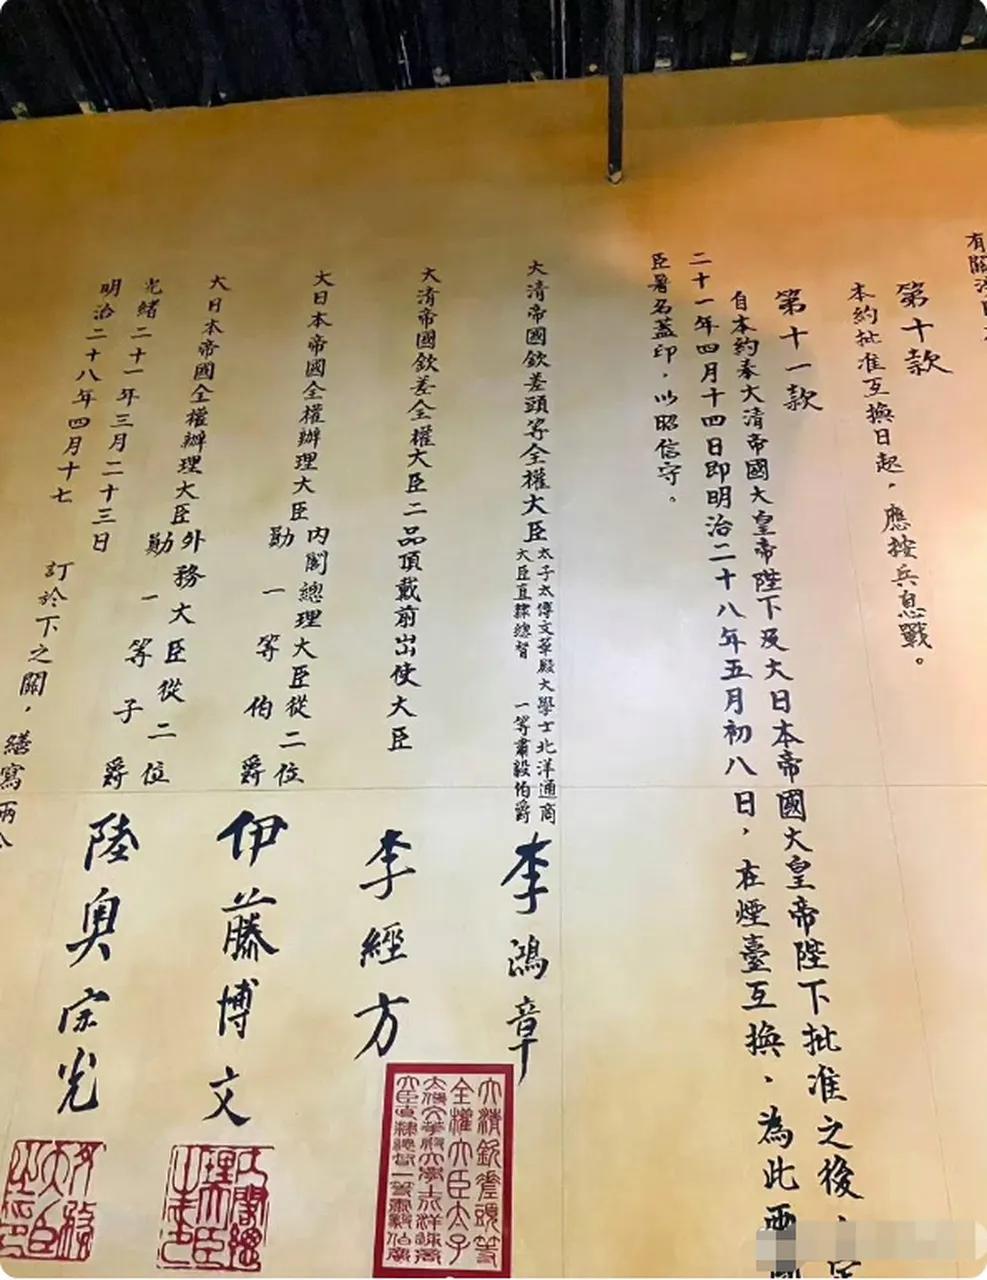 有關
第十款
本約批准互換日起，應按兵息戰。
第十一款
自本約奉大清帝國大皇帝陛下及大日本帝國大皇帝陛下批准之後，定
二十一年四月十四日即明治二十八年五月初八日，在煙臺互換．為此兩國
臣署名蓋印，以昭信守。
大清帝國欽差頭等全權大臣
太子太傅文華殿大學士北洋通商
大臣直隸總督 一等肅毅伯爵
李鴻章
大清帝國欽差全權大臣二品頂戴前出使大臣
李經方
大日本帝國全權辦理大臣
內閣總理大臣從二位
勛一等伯爵
伊藤博文
大日本帝國全權辦理大臣
外務大臣從二位
勛一等子爵
陸奧宗光
光緒二十一年三月二十三日
明治二十八年四月十七
訂於下之關，繕寫兩
大清欽差頭等
全權大臣太子
太傅文華殿大學士北洋通商
大臣直隸總督一等肅毅伯爵